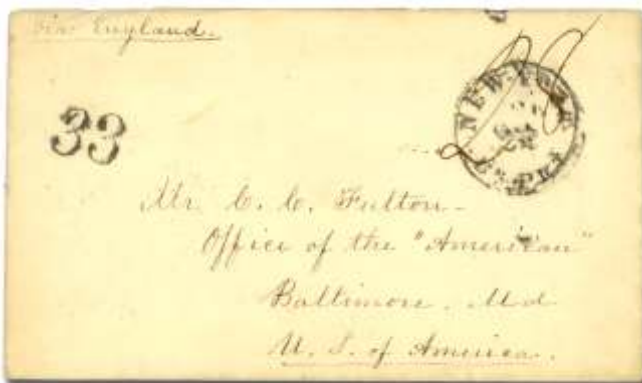 Via England.
NEW-YORK
33
Mr. C. C. Fulton -
Office of the "American"
Baltimore. Md
U. S. of America.